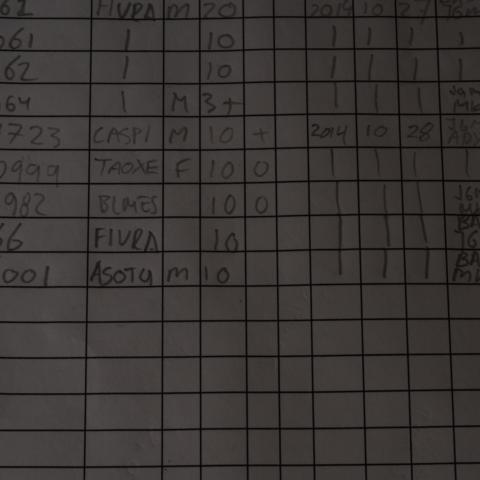 62 FIVRA M 20 2014 10 27
061 | 10 | | | |
062 | 10 | | | |
64 | M 3+ | | | JGM
1723 CASPI M 10 + 2014 10 28 JGM
0999 TAOXE F 10 0 | | | |
982 BLMES 10 0 | | | JGM
66 FIVRA 10 | | |
001 ASOTU M 10 | | |